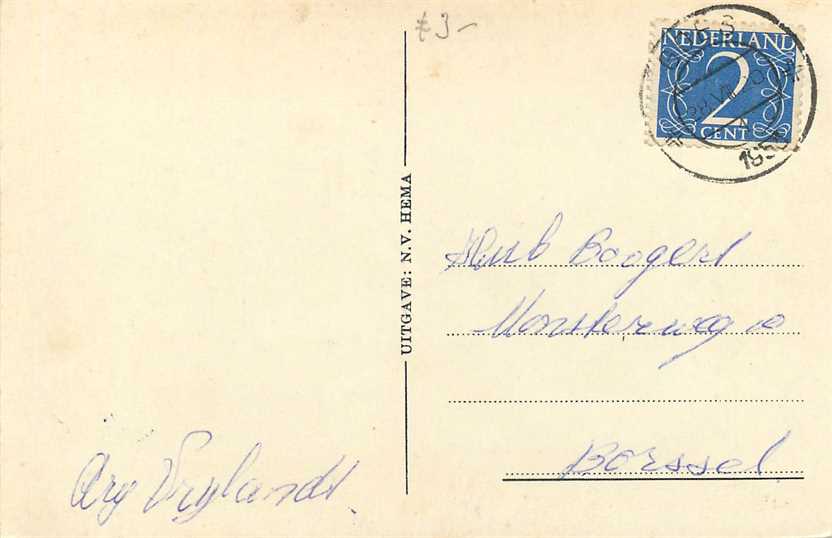 £ 3-
GOES
NEDERLAND
2
CENT
195
UITGAVE: N.V. HEMA
Huib Boogert
Monsterweg
Borssel
Ary Vrylandt